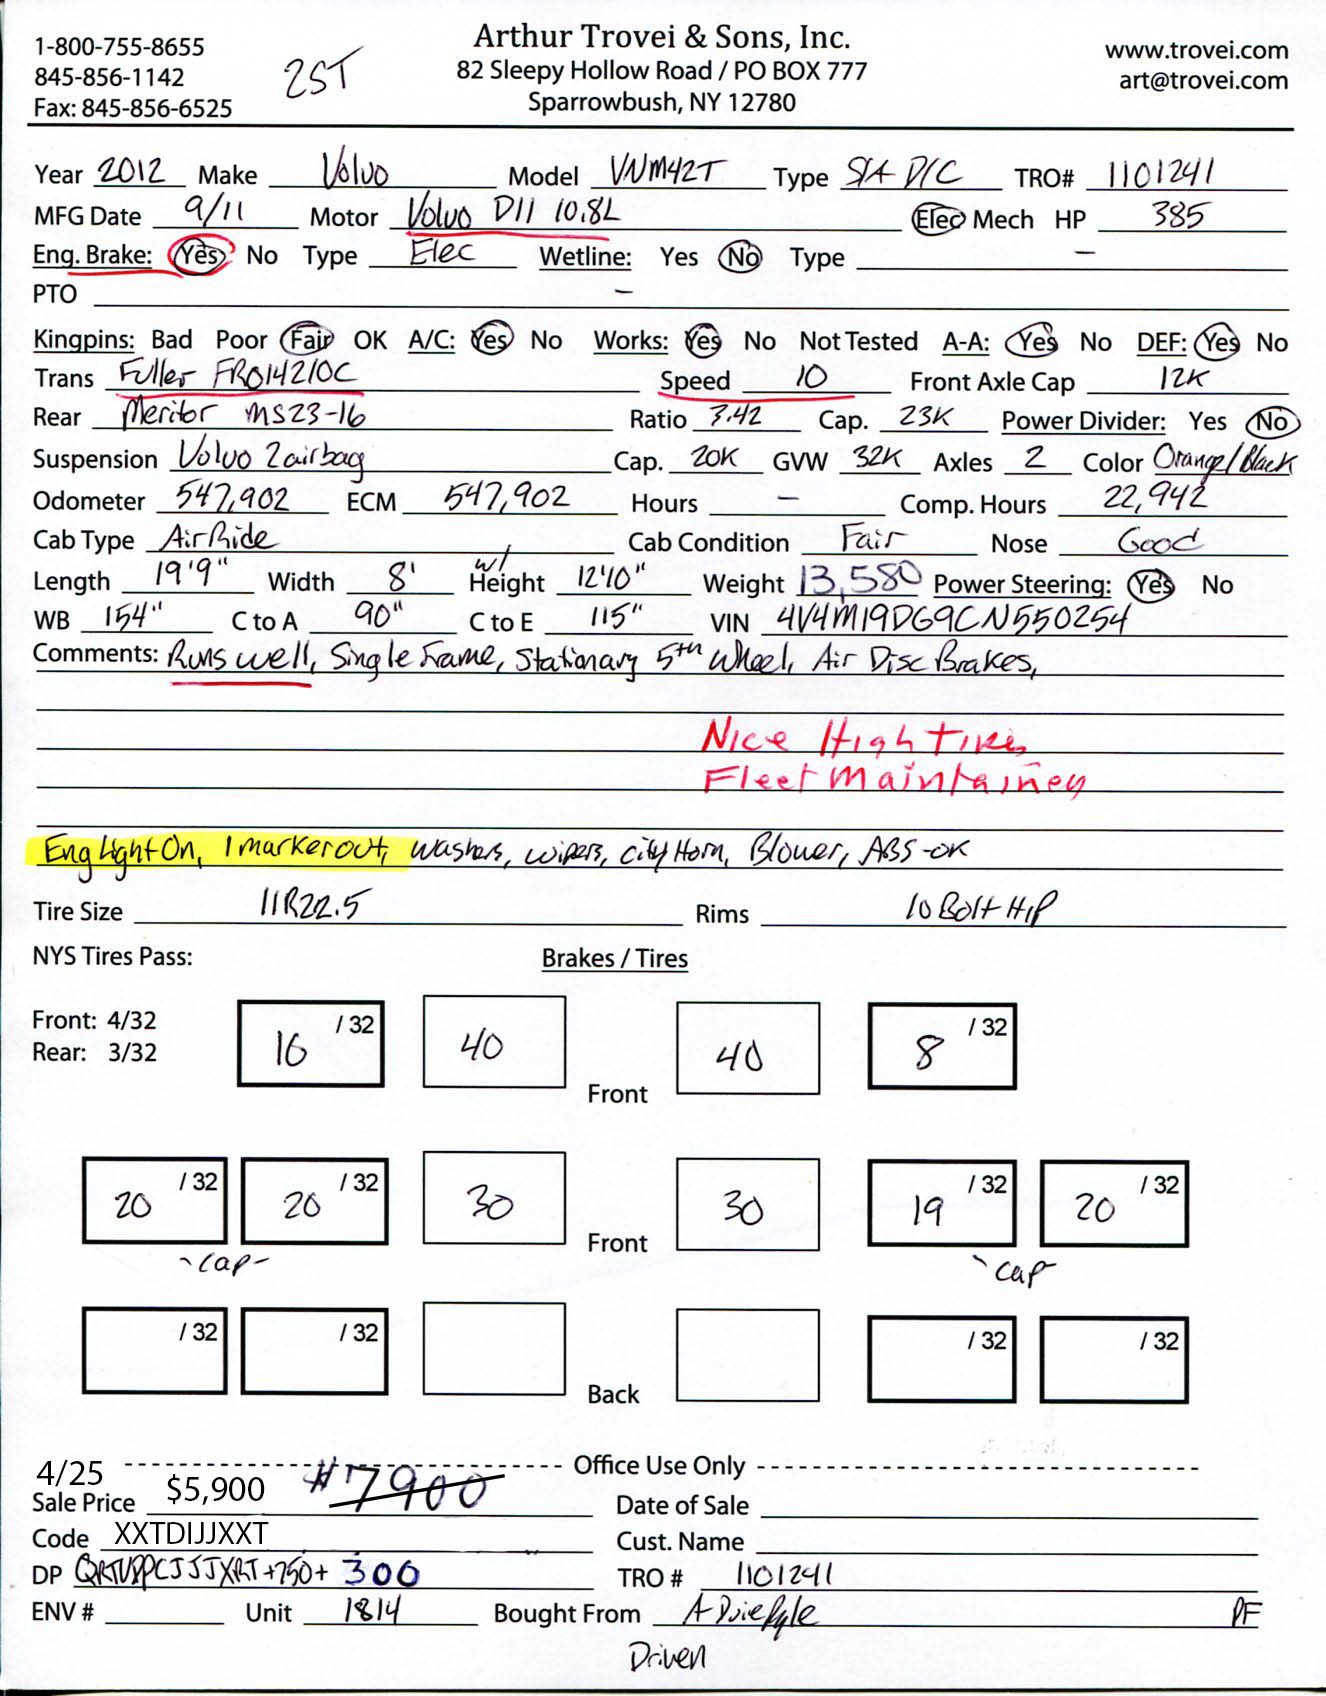 1-800-755-8655
845-856-1142
Fax: 845-856-6525
2ST
Arthur Trovei & Sons, Inc.
82 Sleepy Hollow Road / PO BOX 777
Sparrowbush, NY 12780
www.trovei.com
art@trovei.com
Year 2012 Make Volvo Model VNM42T Type S/A D/C TRO# 1101241
MFG Date 9/11 Motor Volvo D11 10.8L Elec Mech HP 385
Eng. Brake: Yes No Type Elec Wetline: Yes No Type -
PTO -
Kingpins: Bad Poor Fair OK A/C: Yes No Works: Yes No Not Tested A-A: Yes No DEF: Yes No
Trans Fuller FRO14210C Speed 10 Front Axle Cap 12K
Rear Meritor MS23-16 Ratio 3.42 Cap. 23K Power Divider: Yes No
Suspension Volvo 2airbag Cap. 20K GVW 32K Axles 2 Color Orange/Black
Odometer 547,902 ECM 547,902 Hours - Comp. Hours 22,942
Cab Type AirRide Cab Condition Fair Nose Good
Length 19'9" Width 8' w/ Height 12'10" Weight 13,580 Power Steering: Yes No
WB 154" C to A 90" C to E 115" VIN 4V4M19DG9CN550254
Comments: Runs well, Single Frame, Stationary 5th Wheel, Air Disc Brakes,
Nice High Tires
Fleet Maintained
Eng Light On, 1 marker out, washers, wipers, city Horn, Blower, ABS-OK
Tire Size 11R22.5 Rims 10 Bolt H/P
NYS Tires Pass: Brakes / Tires
Front: 4/32
Rear: 3/32
16 /32 40 Front 40 8 /32
20 /32 20 /32 30 Front 30 19 /32 20 /32
-cap- -cap-
/32 /32 Back /32 /32
4/25 Office Use Only
Sale Price $5,900 #7900 Date of Sale
Code XXTDIJJXXT Cust. Name
DP +750+ 300 TRO # 1101241
ENV # Unit 1814 Bought From A Duie Pyle PF
Driven